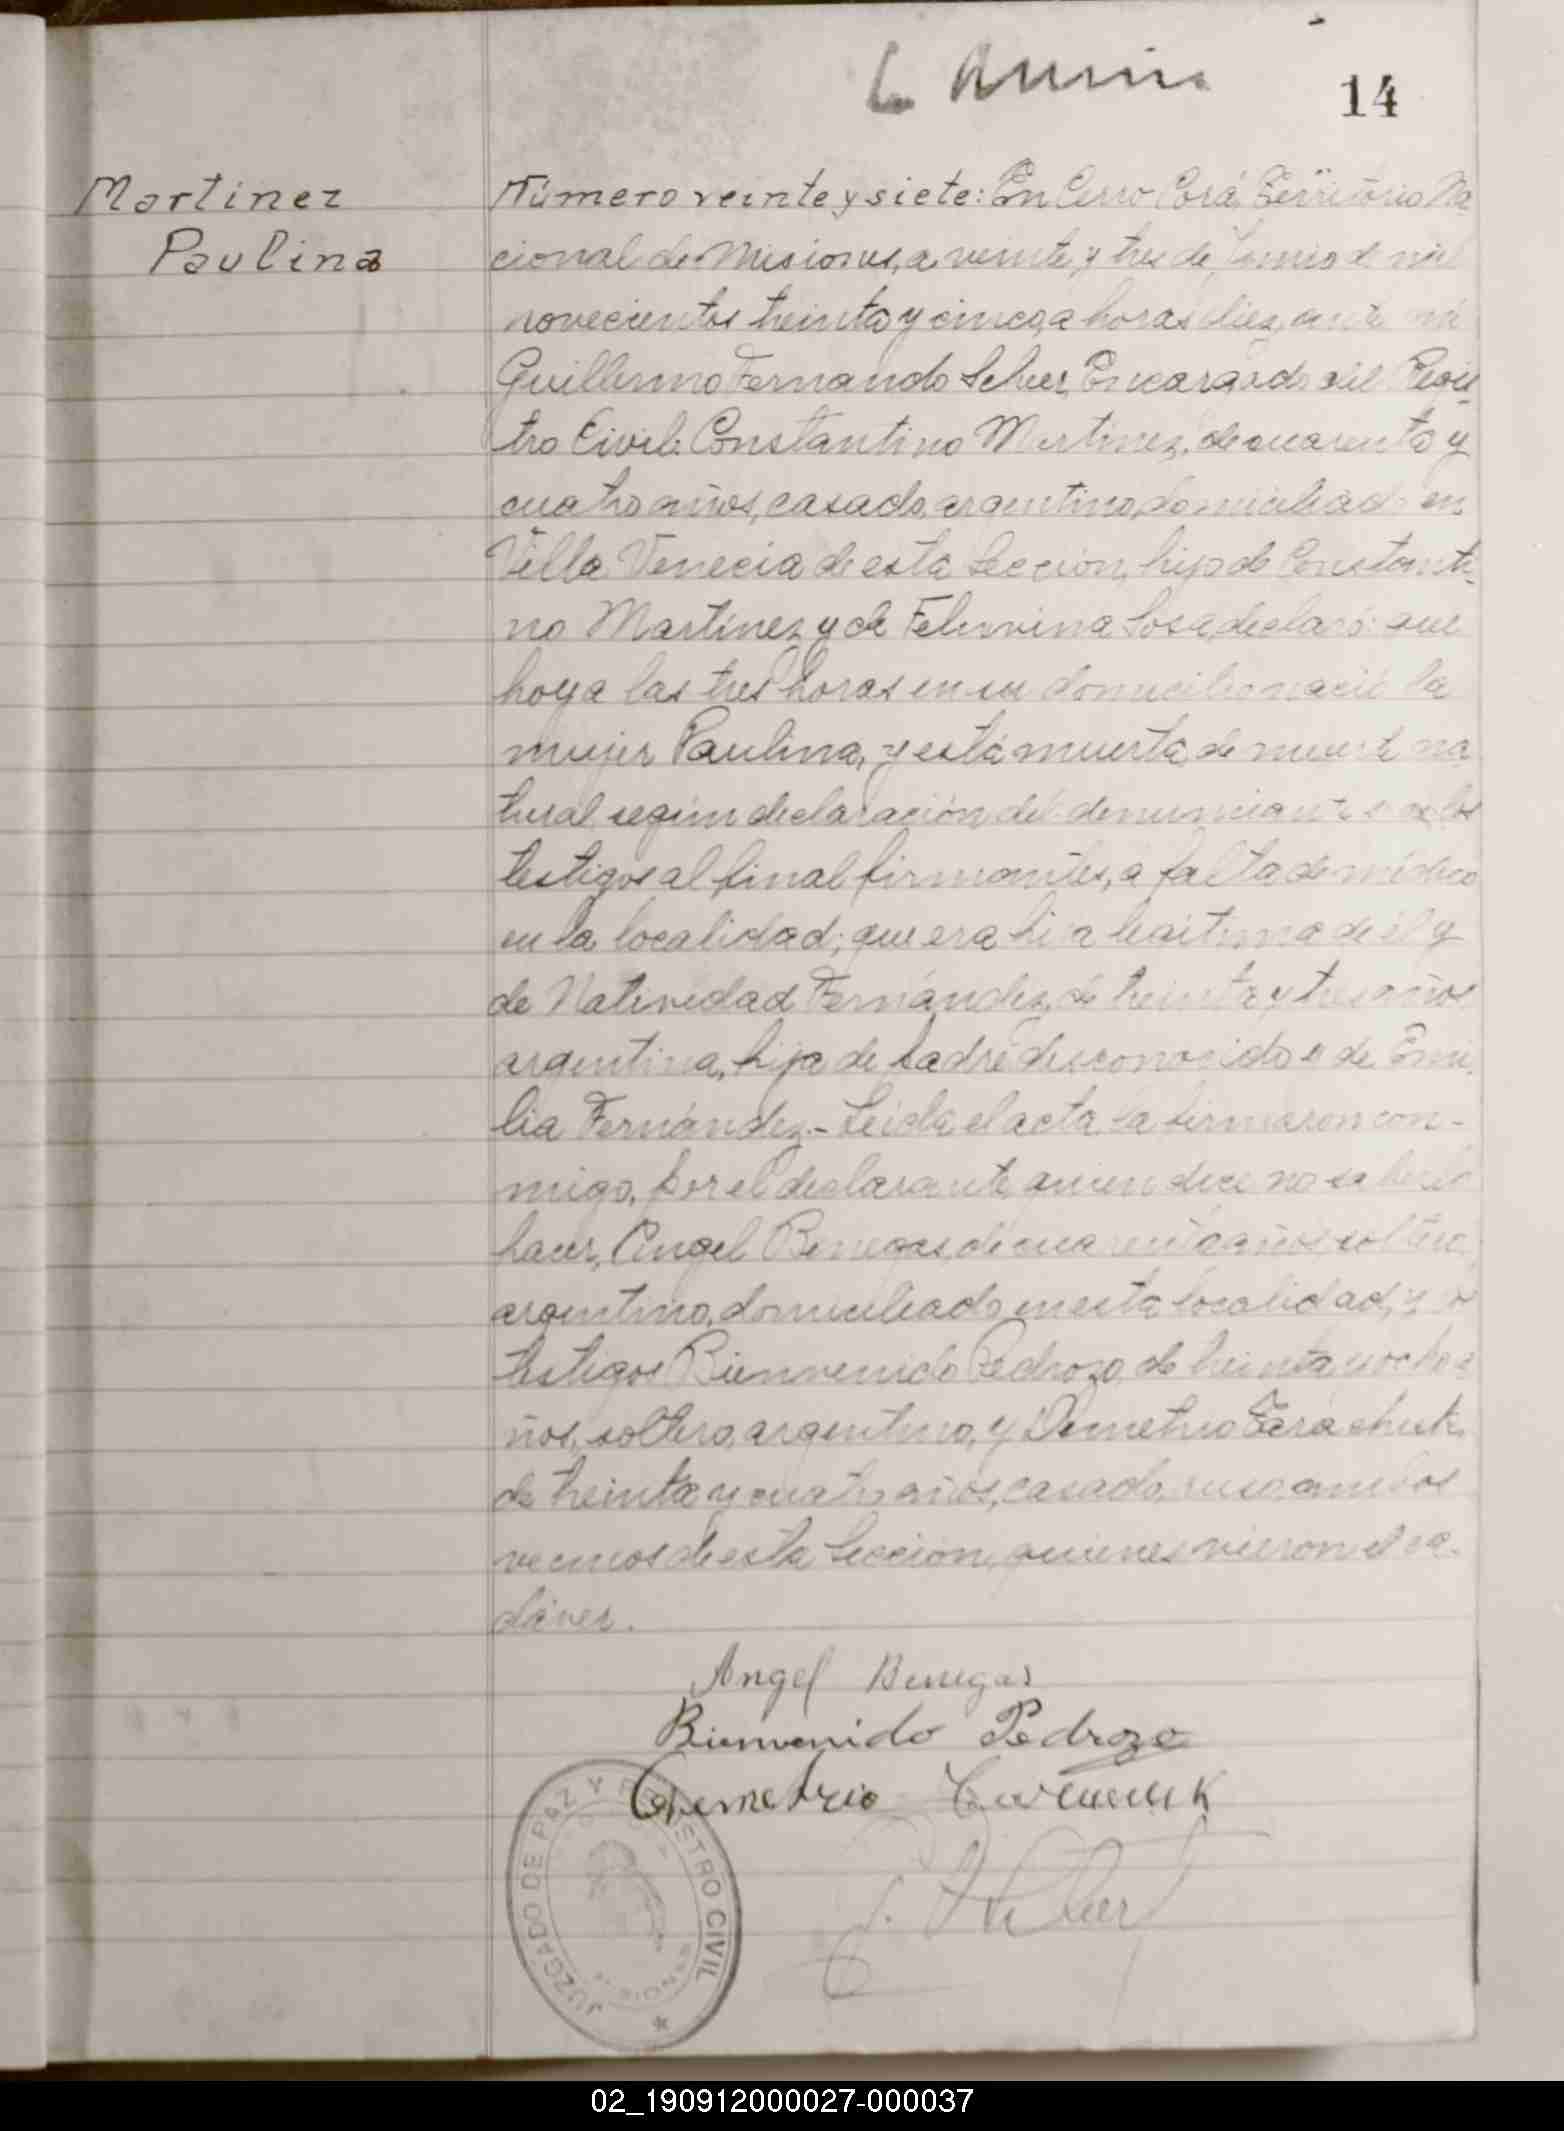 14
Martinez
Paulina
Número veinte y siete: En Cerro Corá, Territorio Na
cional de Misiones, a veinte y tres de Junio de mil
novecientos treinta y cinco, a horas diez, ante mí
Guillermo Fernando Scheer, Encargado del Regis
tro Civil: Constantino Martinez, de cuarenta y
cuatro años, casado, argentino, domiciliado en
Villa Venecia de esta Sección, hijo de Constanti
no Martínez y de Felurina Sosa, declaró: que
hoy a las tres horas en su domicilio nació la
mujer Paulina, y está muerta de muerte na
tural según declaración del denunciante y de los
testigos al final firmantes, a falta de médico
en la localidad; que era hija legítima de él y
de Natividad Fernández, de treinta y tres años
argentina, hija de padre desconocido y de Emi
lia Fernández.- Leída el acta la firmaron con-
migo, por el declarante quien dice no saberlo
hacer, Angel Benegas, de cuarenta años, soltero,
argentino, domiciliado en esta localidad, y los
testigos Bienvenido Pedrozo, de treinta y ocho a
ños, soltero, argentino, y Demetrio
de treinta y cuatro años, casado, ruso, ambos
vecinos de esta Sección, quienes vieron el ca-
dáver.
Angel Benegas
Bienvenido Pedrozo
Demetrio
JUZGADO DE PAZ Y REGISTRO CIVIL
02_190912000027-000037